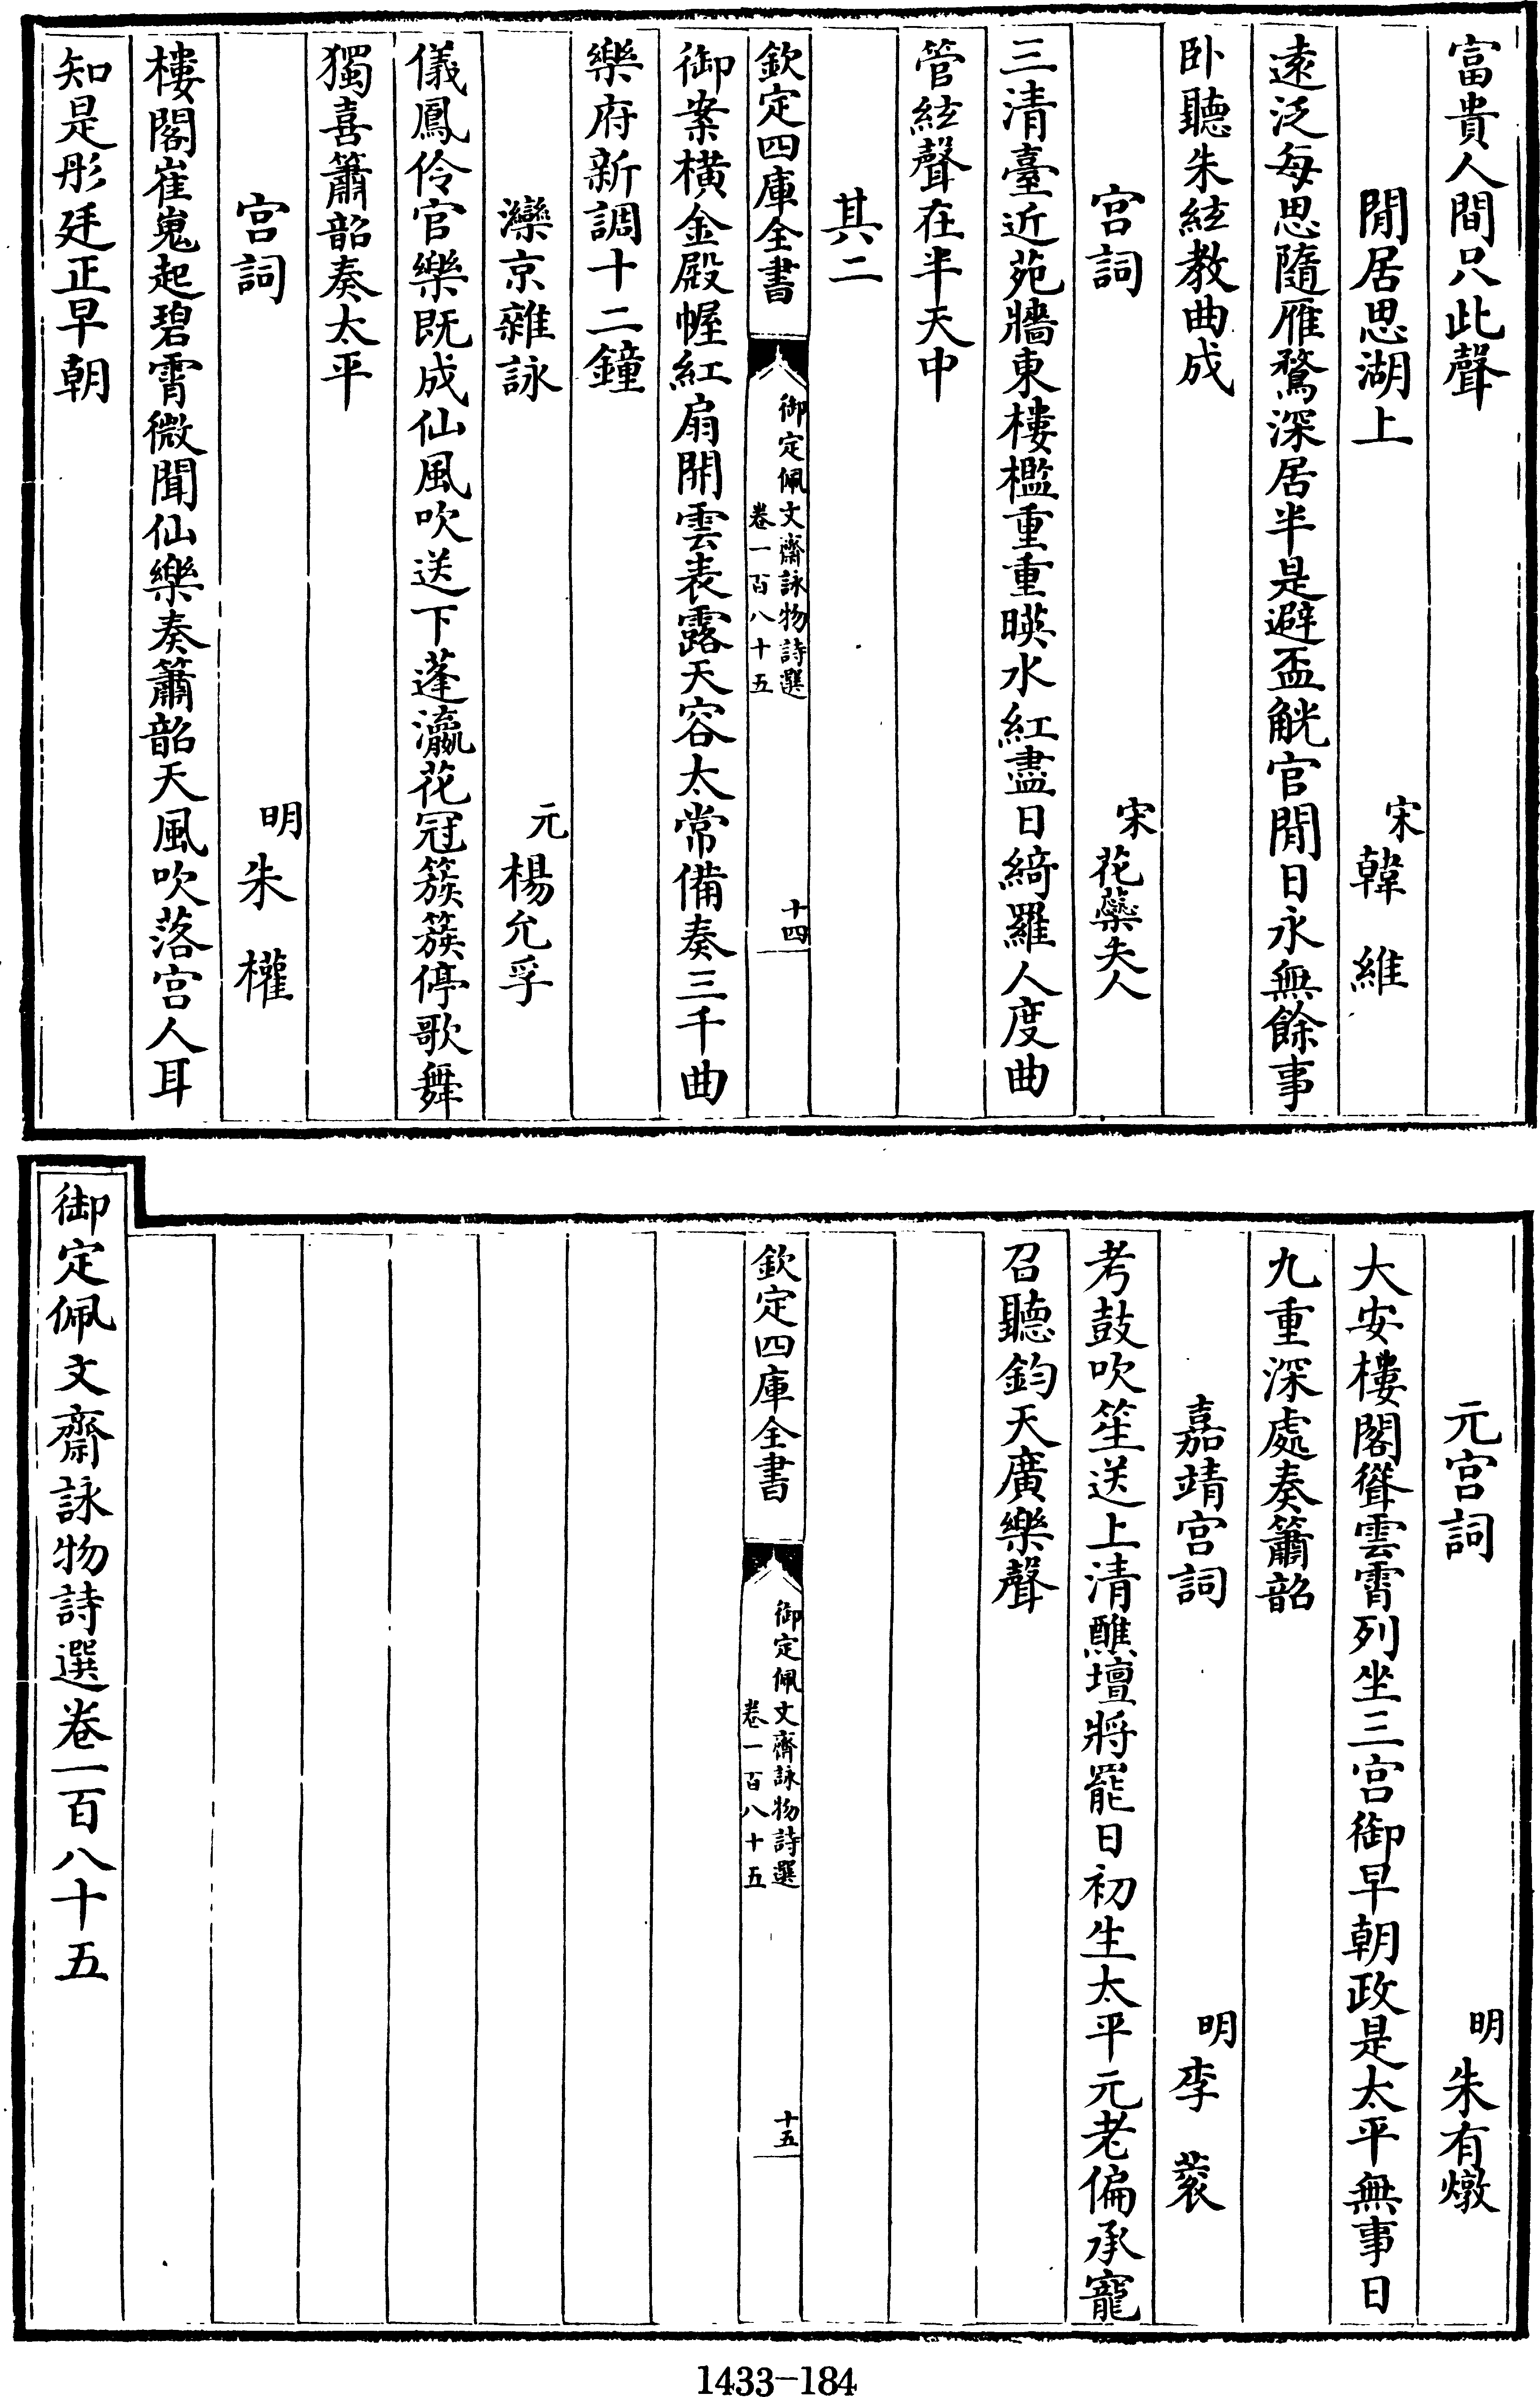 富貴人間只此聲
閒居思湖上 宋 韓維
遠泛每思隨雁鶩深居半是避盃觥官閒日永無餘事
卧聽朱絃教曲成
宫詞 宋 花蘂夫人
三清臺近苑牆東樓檻重重暎水紅盡日綺羅人度曲
管絃聲在半天中
其二
欽定四庫全書
御定佩文齋詠物詩選
卷一百八十五
十四
御案横金殿幄紅扇開雲表露天容太常備奏三千曲
樂府新調十二鐘
灤京雜詠 元 楊允孚
儀鳳伶官樂既成仙風吹送下蓬瀛花冠簇簇停歌舞
獨喜簫韶奏太平
宫詞 明 朱權
樓閣崔嵬起碧霄微聞仙樂奏簫韶天風吹落宫人耳
知是彤廷正早朝
元宫詞 明 朱有燉
大安樓閣聳雲霄列坐三宫御早朝政是太平無事日
九重深處奏簫韶
嘉靖宫詞 明 李蓘
考鼓吹笙送上清醮壇將罷日初生太平元老偏承寵
召聽鈞天廣樂聲
欽定四庫全書
御定佩文齋詠物詩選
卷一百八十五
十五
御定佩文齋詠物詩選卷一百八十五
1433-184